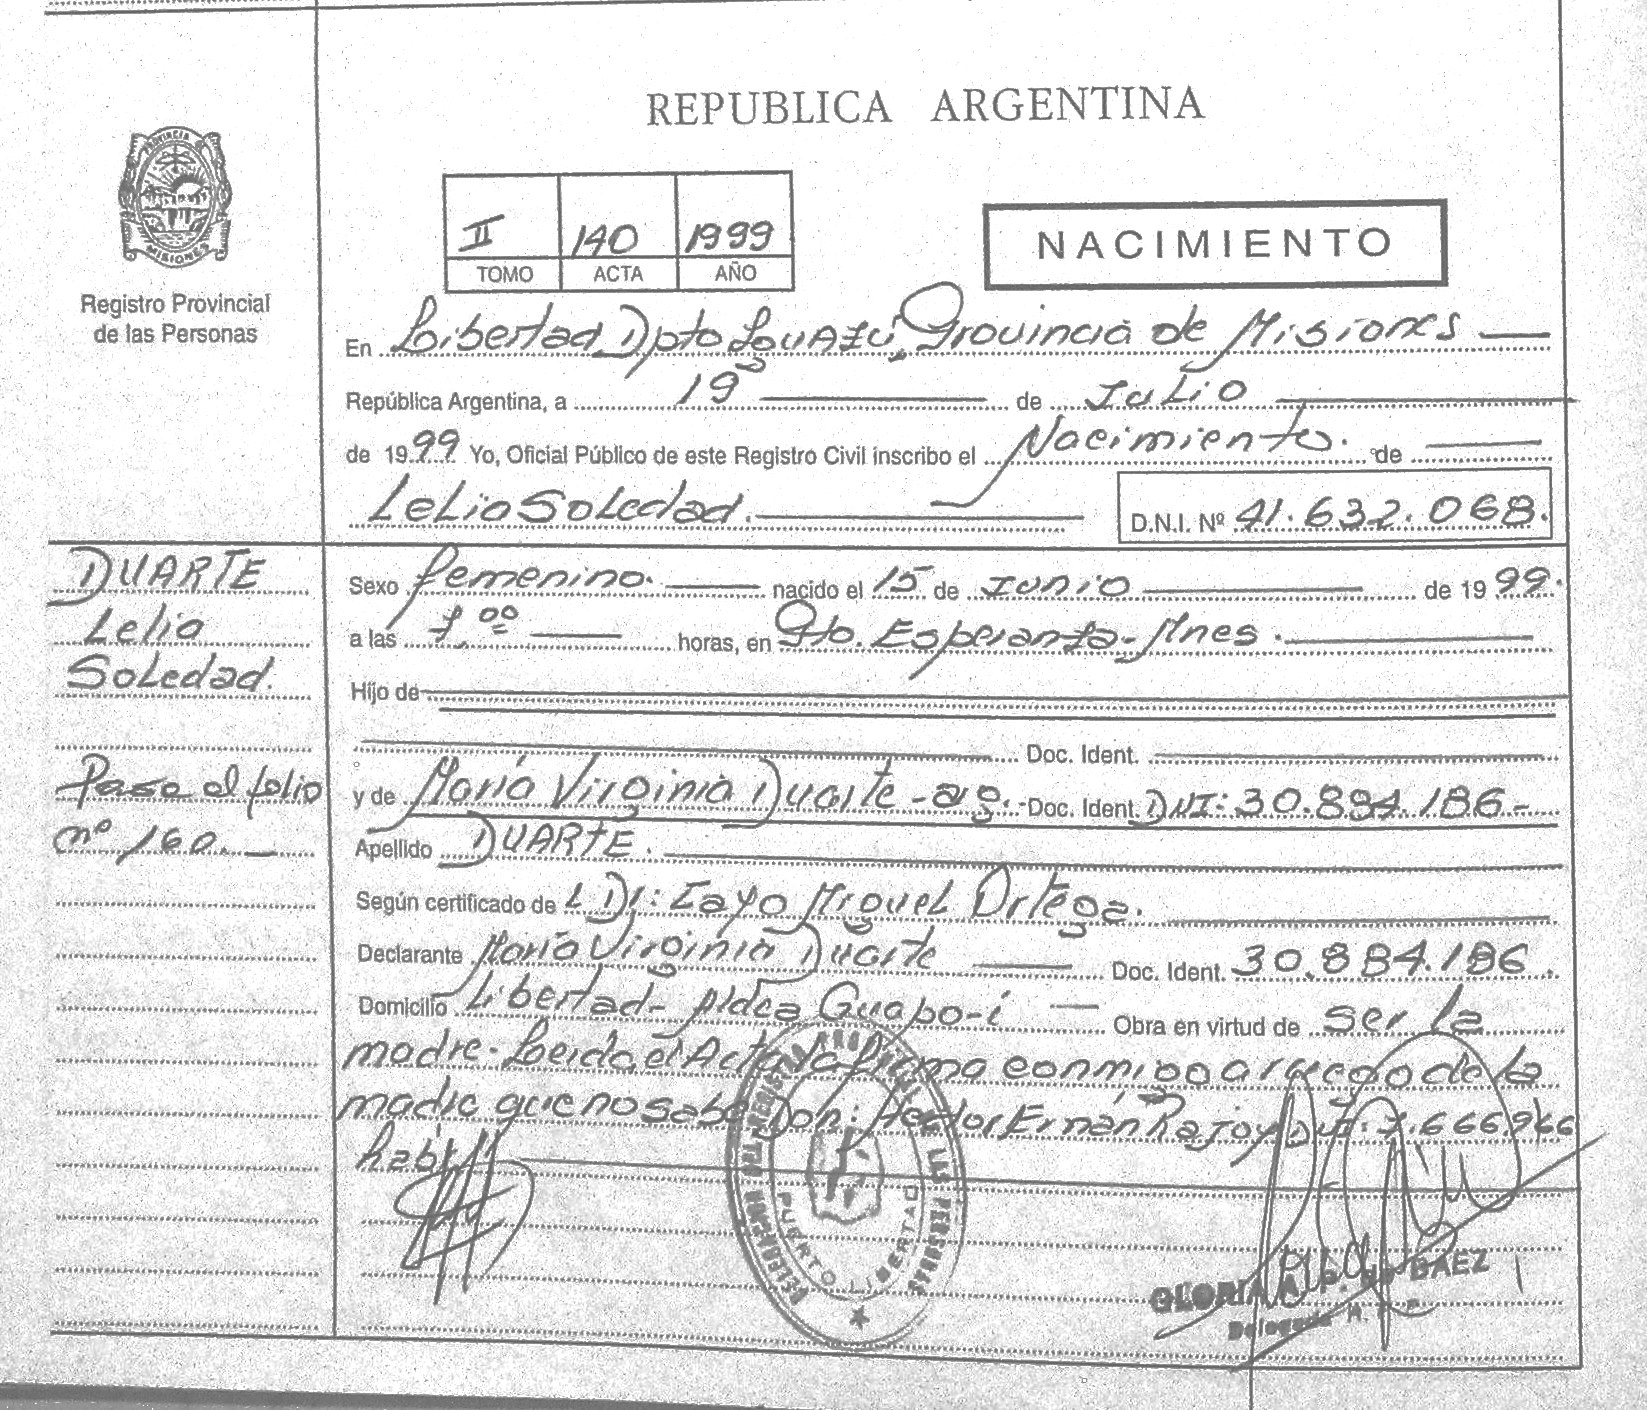 REPUBLICA ARGENTINA
PROVINCIA
MISIONES
Registro Provincial
de las Personas
II 140 1999
TOMO ACTA AÑO
NACIMIENTO
En Libertad Dpto Iguazú, Provincia de Misiones
República Argentina, a 19 de Julio
de 1999 Yo, Oficial Público de este Registro Civil inscribo el Nacimiento. de
Lelia Soledad. D.N.I. Nº 41.632.068.
DUARTE
Lelia
Soledad.
Pase al folio
nº 160.
Sexo femenino. nacido el 15 de Junio de 1999.
a las horas, en Pto. Esperanza-Mnes.
Hijo de
Doc. Ident.
y de María Virginia Duarte - Doc. Ident. DNI: 30.884.186.-
Apellido DUARTE.
Según certificado de Miguel Ortega.
Declarante María Virginia Duarte Doc. Ident. 30.884.186.
Domicilio Libertad- Aldea Guapo-i Obra en virtud de ser la
madre. Leida el Acta la firma conmigo a ruego de la
madre que no sabe Don: Hector Ernán DNI. 7.666.966
DELEGACION REGISTRO PROVINCIAL DE LAS PERSONAS
PUERTO LIBERTAD
GLORIA A. P. DE BAEZ
Delegada